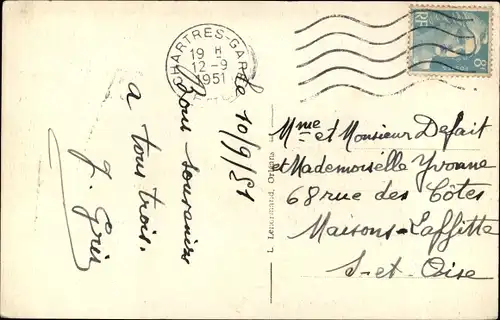 CHARTRES-GARE
19 H
12-9
1951
8
le 10/9/51
Bons souvenirs
à tous trois.
L. Lenormand, Orléans
Mme et Monsieur Defait
et Mademoiselle Yvonne
68 rue des Côtes
Maisons-Laffitte
S-et-Oise